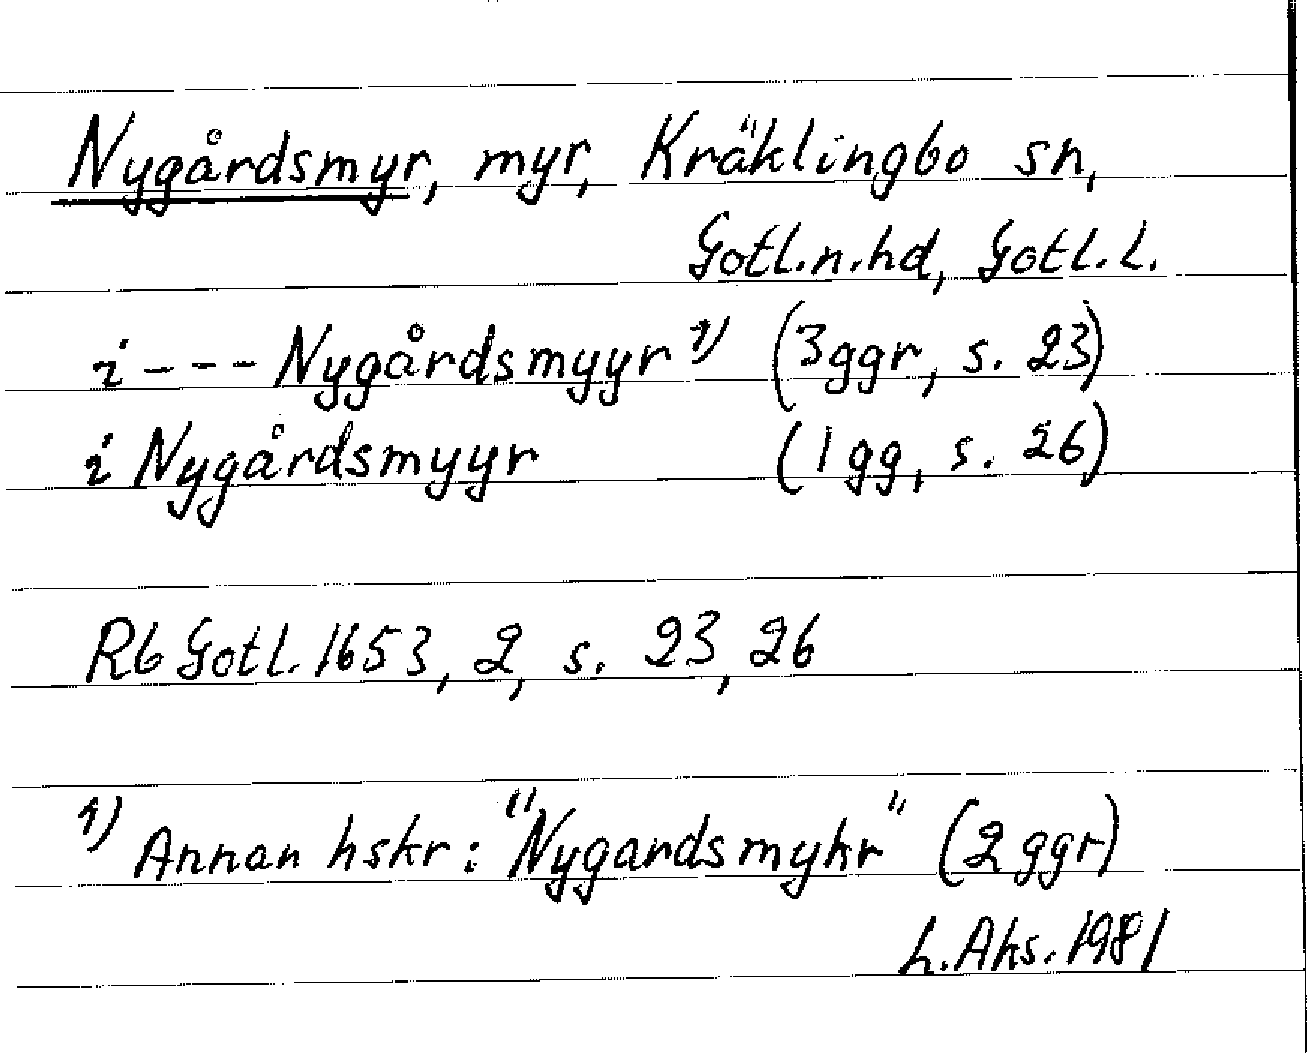 Nygårdsmyr, myr, Kräklingbo sn,
Gotl.n.hd, Gotl.l.
i - - - Nygårdsmyyr 1) (3ggr, s. 23)
i Nygårdsmyyr (1gg, s. 26)
Rb Gotl. 1653, 2, s. 23, 26
1) Annan hskr: "Nygardsmyhr" (2ggr)
L. Aks. 1981